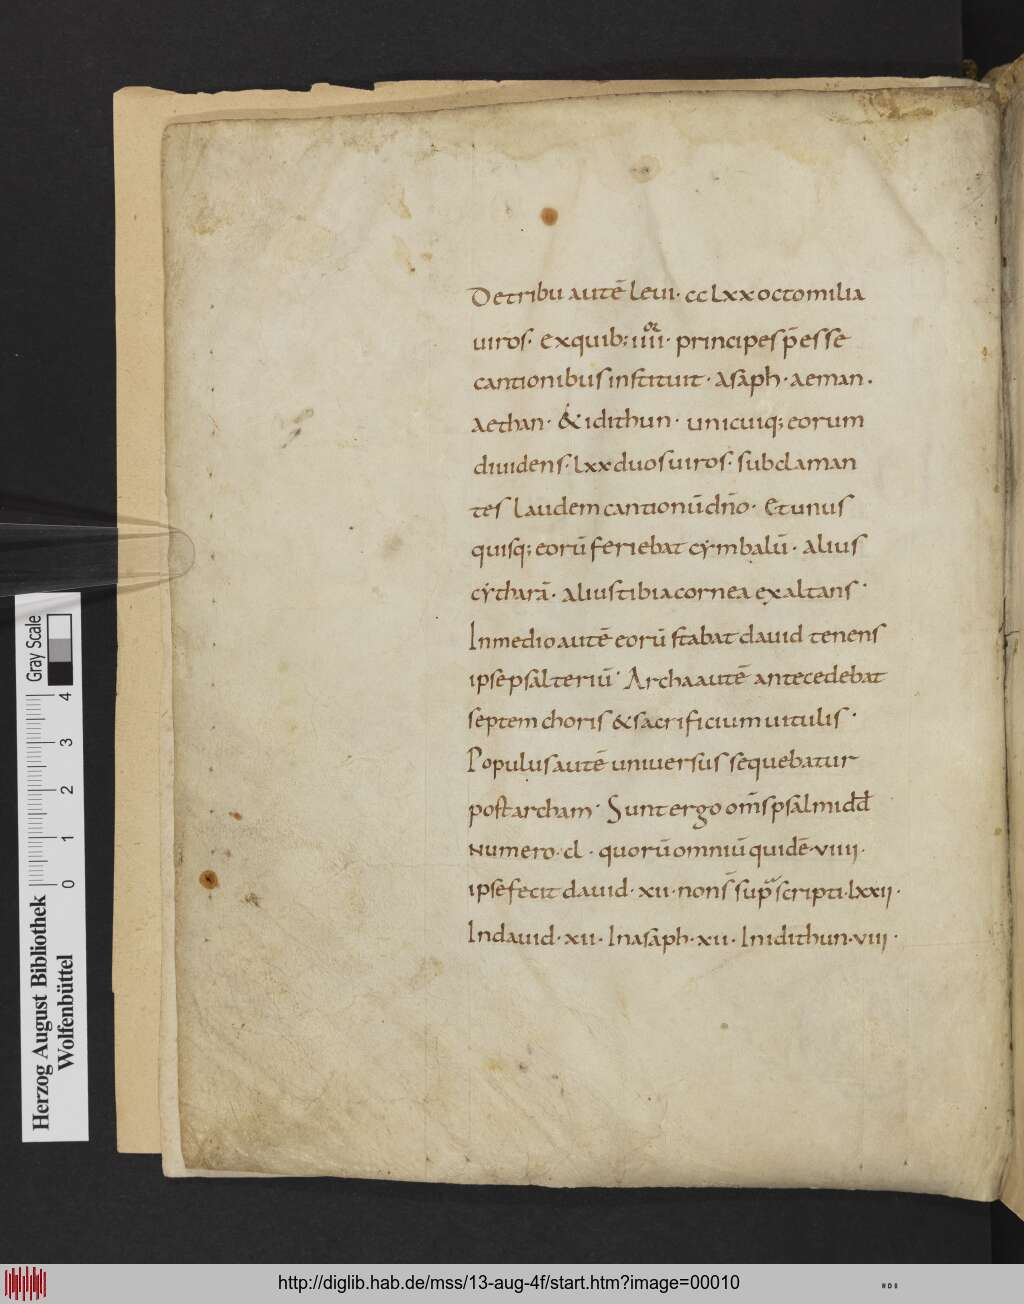 De tribu autē leui· cclxx octo milia
uiros· Ex quib; iiii^or· principes p̄esse
cantionibus instituit· Asaph· aeman·
aethan· & idithun· unicuiq; eorum
diuidens· lxx duos uiros· subclaman
tes laudem cantionū dn̄o· Et unus
quisq; eorū feriebat cymbalū· alius
cytharā· alius tibia cornea exaltans·
In medio autē eorū stabat dauid tenens
ipse psalteriū· Archa autē antecedebat
septem choris & sacrificium uitulis·
Populus autē uniuersus sequebatur
post archam· Sunt ergo om̄s psalmi dd̄
numero· cl· quorū omniū quidē· viiii·
ipse fecit dauid· xii· non s̄ sup^a scripti· lxxii·
In dauid· xii· In asaph· xii· In idithun· viii·
Gray Scale
0 1 2 3 4
Herzog August Bibliothek
Wolfenbüttel
http://diglib.hab.de/mss/13-aug-4f/start.htm?image=00010